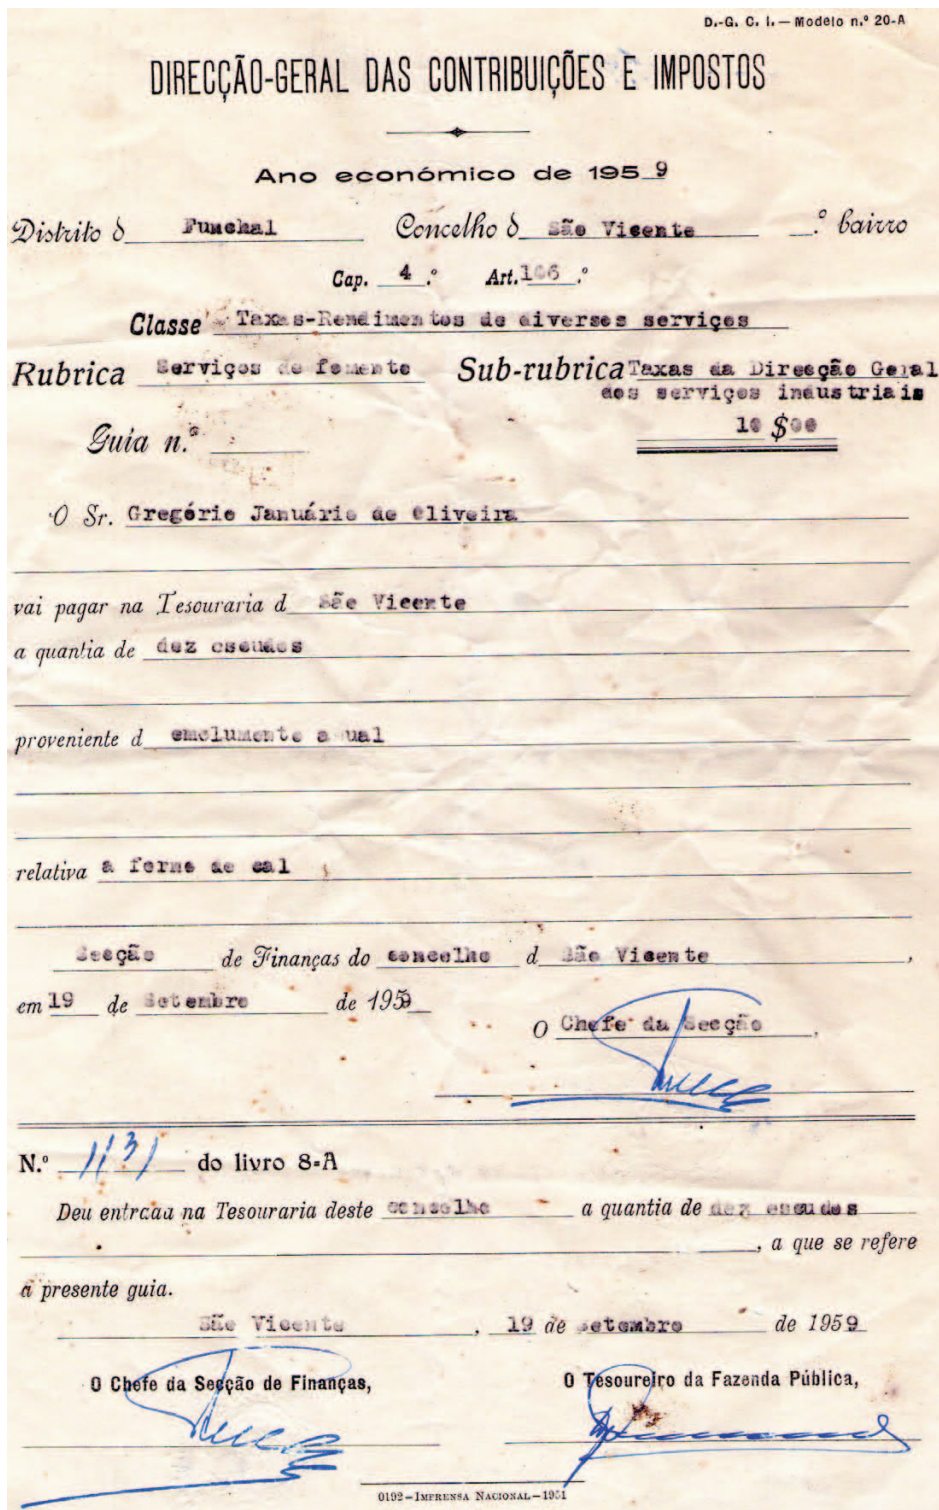 D.-G. C. I. — Modêlo n.º 20-A
DIRECÇÃO-GERAL DAS CONTRIBUIÇÕES E IMPOSTOS
Ano económico de 1959
Distrito d Funchal Concelho d São Vicente .º bairro
Cap. 4.º Art. 106.º
Classe Taxas-Rendimentos de diversos serviços
Rubrica Serviços de fomento Sub-rubrica Taxas da Direcção Geral
dos serviços industriais
Guia n.º 10$00
O Sr. Gregório Januário de Oliveira
vai pagar na Tesouraria d São Vicente
a quantia de dez escudos
proveniente d emolumento a ual
relativa a forno de cal
Secção de Finanças do concelho d São Vicente,
em 19 de Setembro de 1959
O Chefe da Secção,
N.º 1131 do livro 8-A
Deu entrada na Tesouraria deste concelho a quantia de dez escudos
, a que se refere
a presente guia.
São Vicente, 19 de setembro de 1959
O Chefe da Secção de Finanças, O Tesoureiro da Fazenda Pública,
0192 — IMPRENSA NACIONAL — 1951